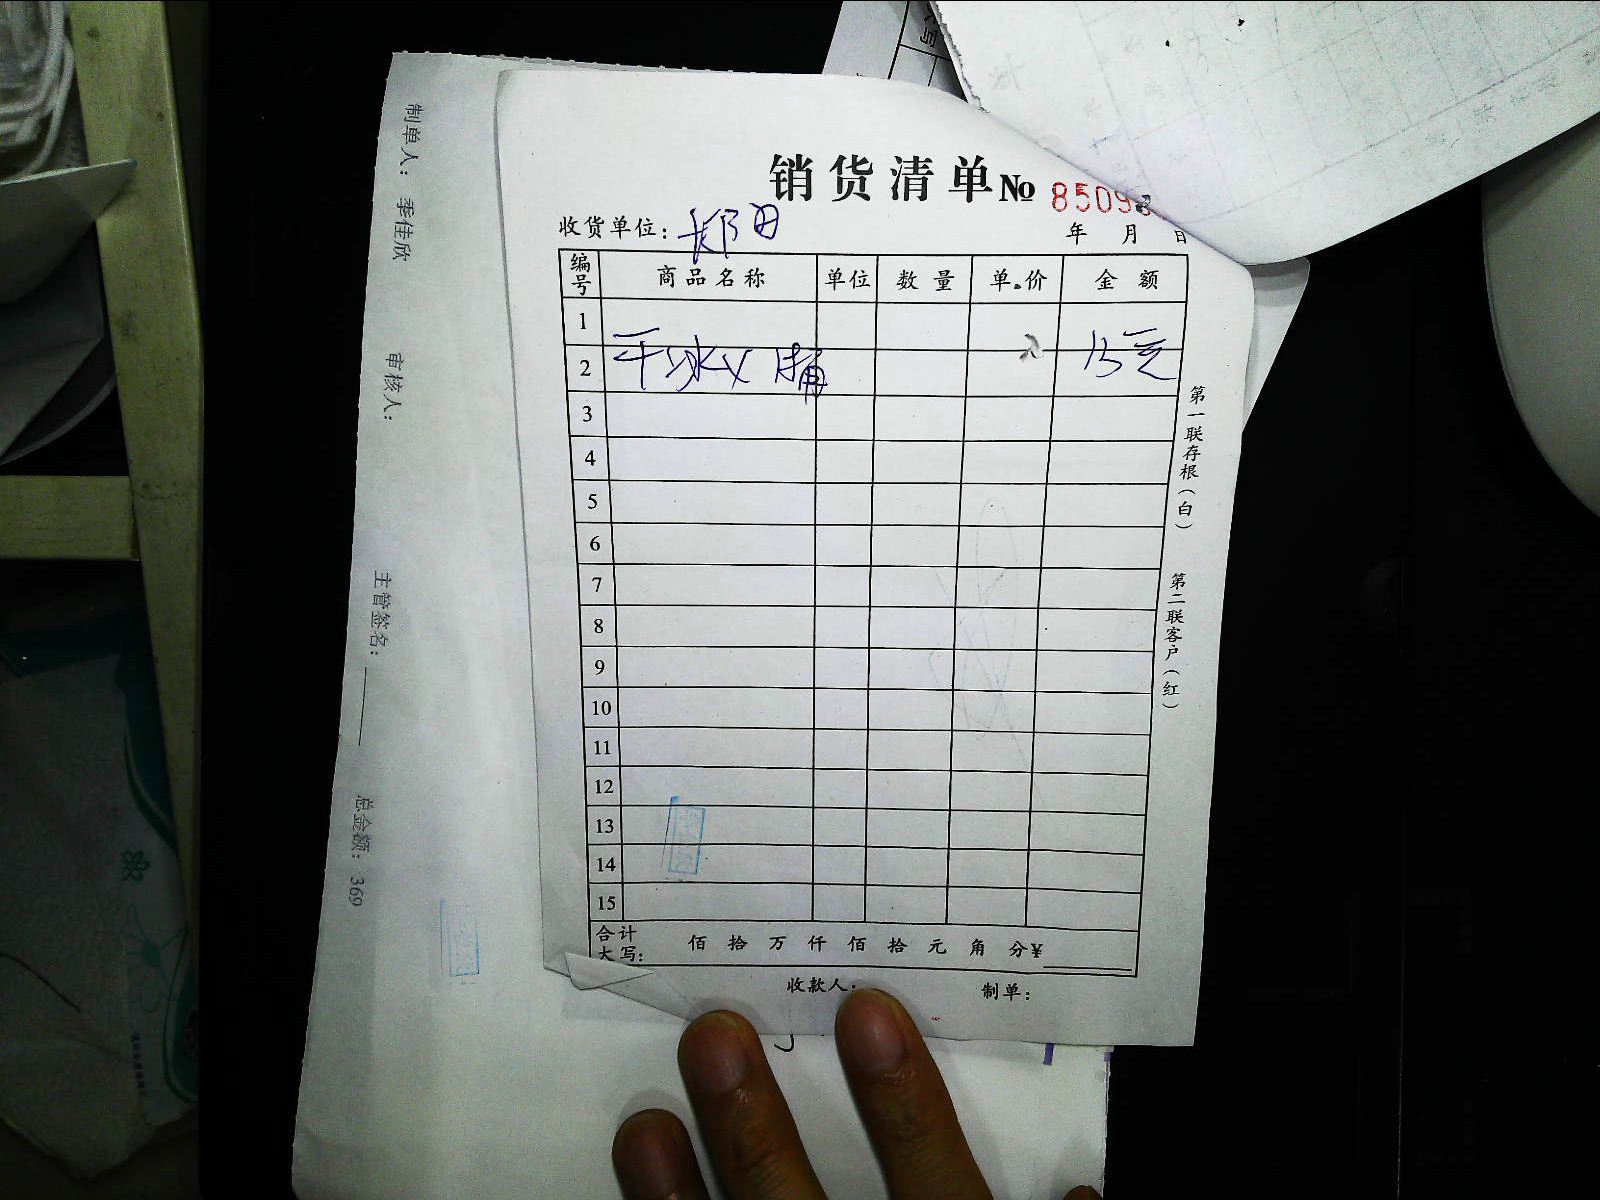 销货清单 № 8509
收货单位: 郑田
年 月 日
编号 商品名称 单位 数量 单价 金额
1
2 15元
3
4
5
6
7
8
9
10
11
12
13
14
15
合计大写: 佰 拾 万 仟 佰 拾 元 角 分 ¥
收款人: 制单:
第一联存根(白) 第二联客户(红)
制单人: 季佳欣 审核人: 主管签名: 总金额: 369
写